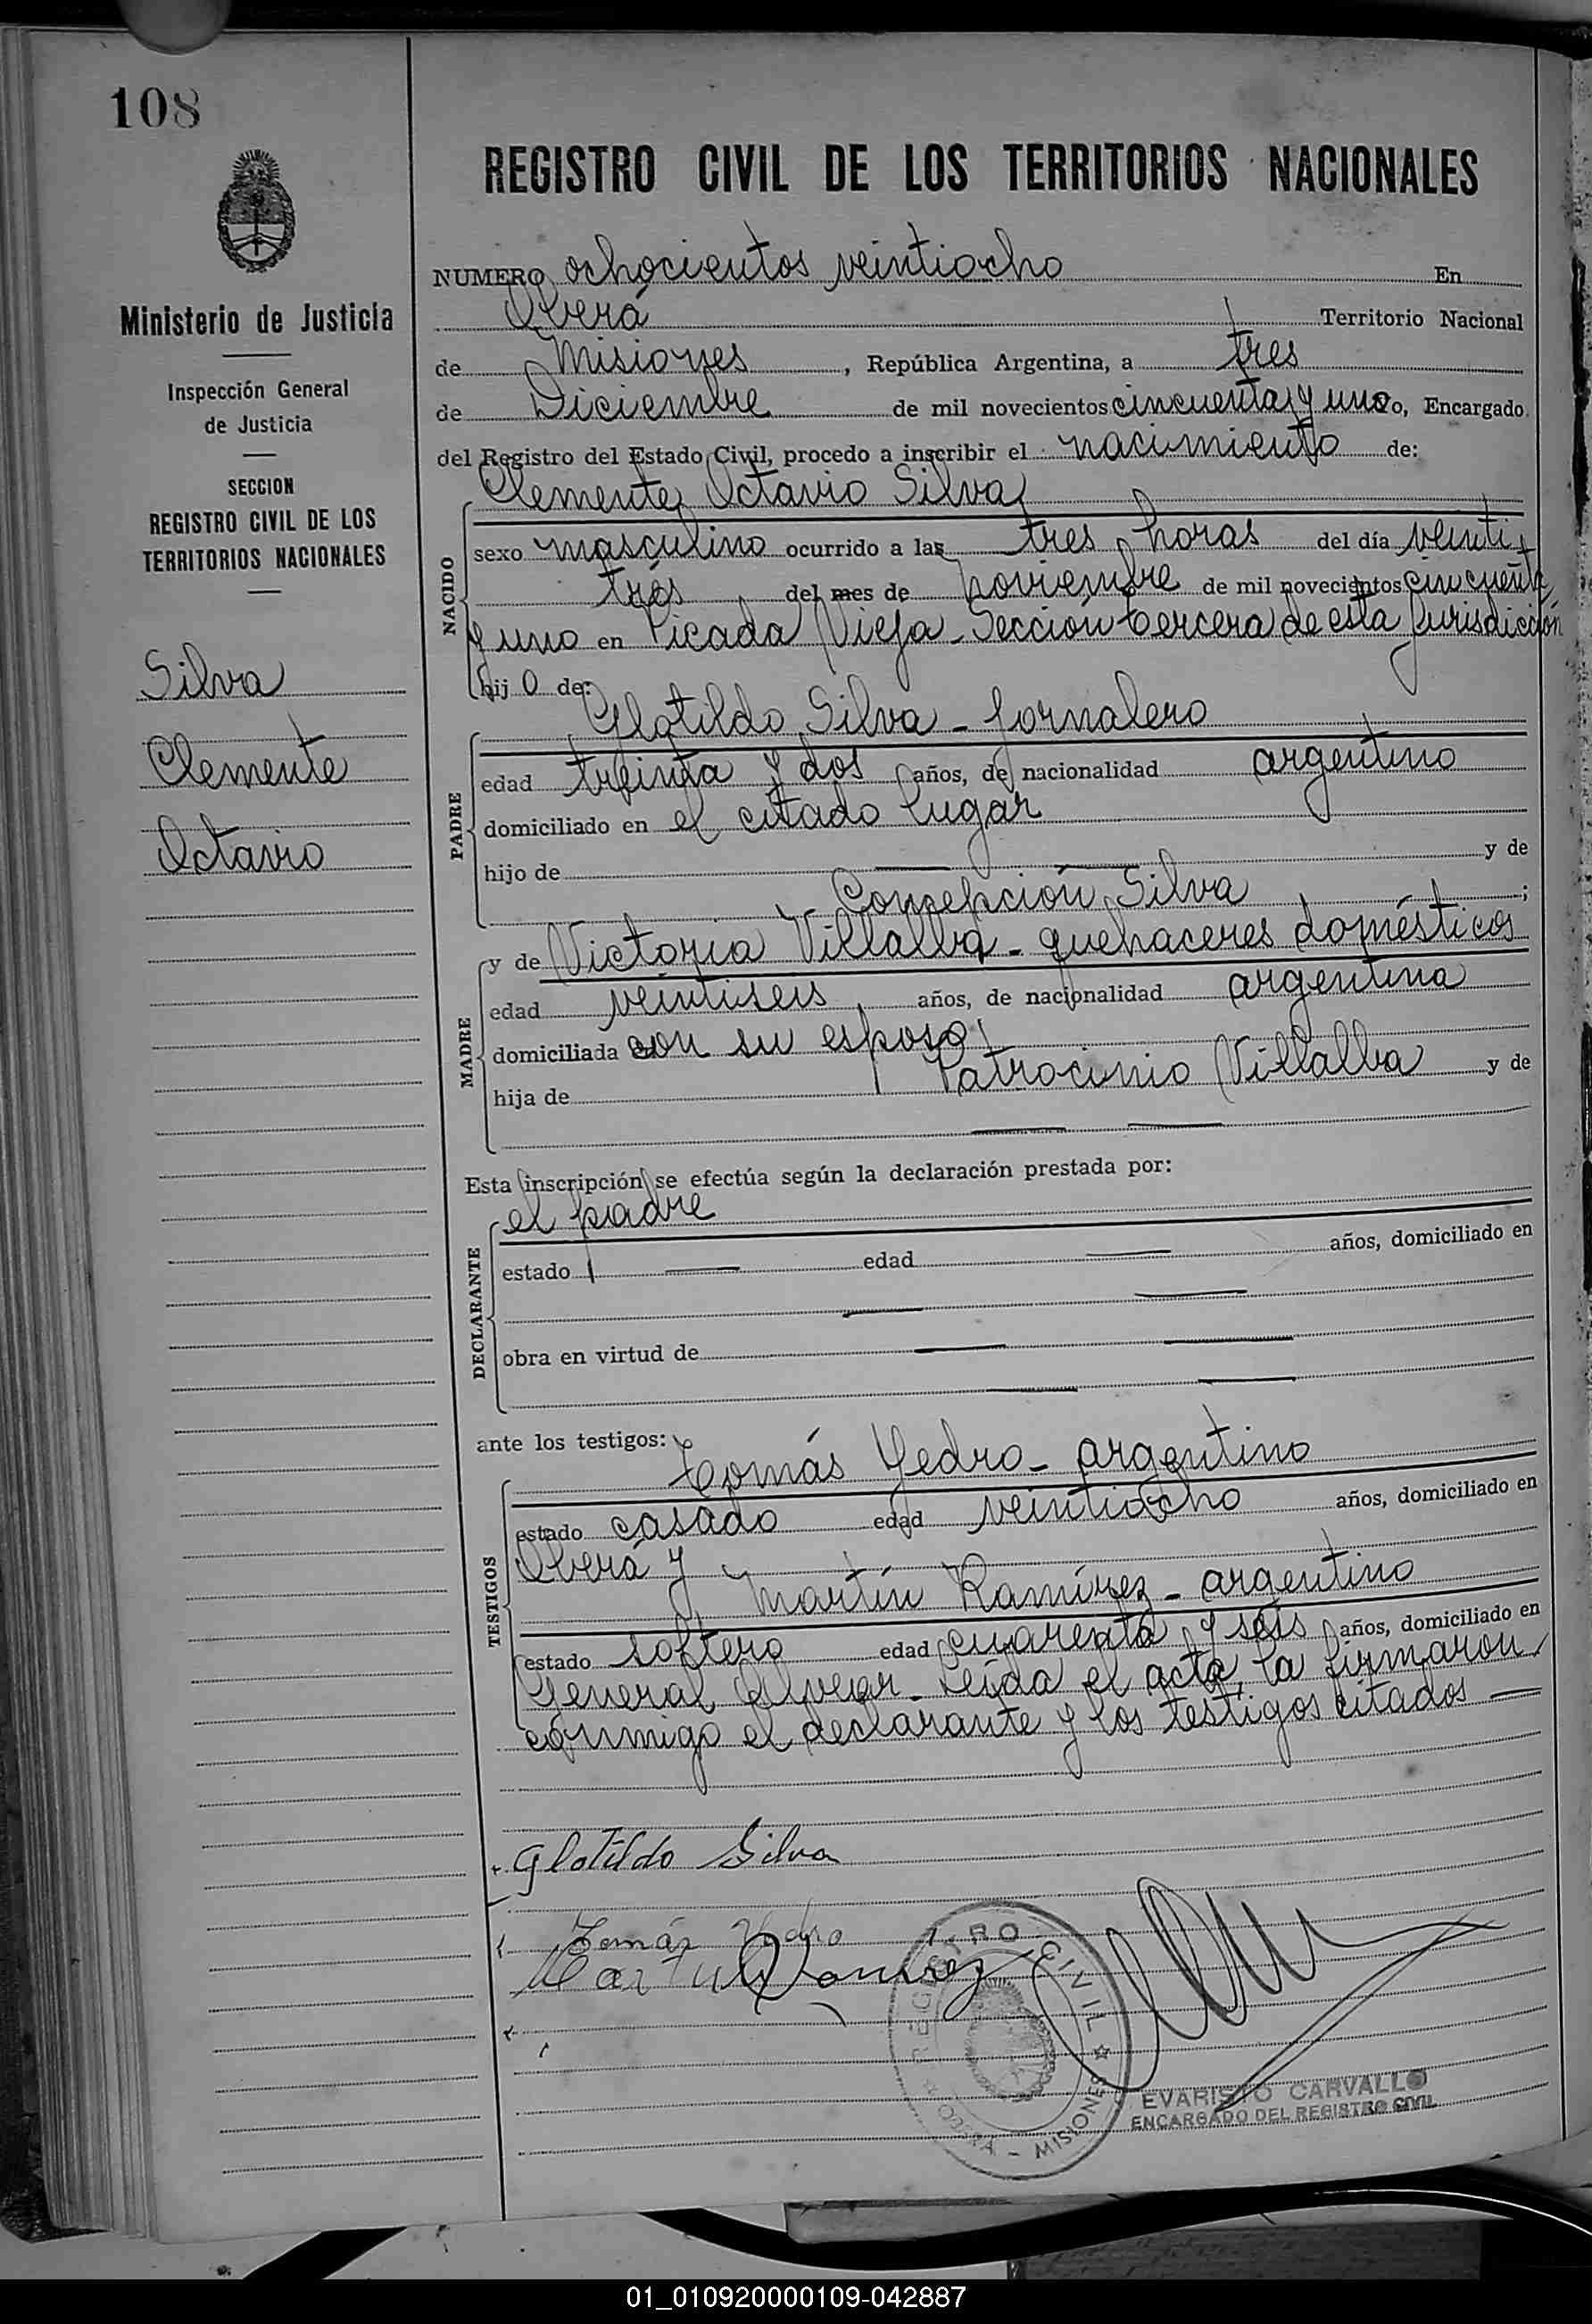 108
REGISTRO CIVIL DE LOS TERRITORIOS NACIONALES
Ministerio de Justicia
Inspección General
de Justicia
SECCION
REGISTRO CIVIL DE LOS
TERRITORIOS NACIONALES
Silva
Clemente
Octavio
NUMERO ochocientos veintiocho En
Oberá Territorio Nacional
de Misiones, República Argentina, a tres
de Diciembre de mil novecientos cincuenta y uno, Encargado
del Registro del Estado Civil, procedo a inscribir el nacimiento de:
Clemente Octavio Silva
NACIDO
sexo masculino ocurrido a las tres horas del día veinti
trés del mes de noviembre de mil novecientos cincuenta
y uno en Picada Vieja - Sección tercera de esta jurisdicción
hij o de:
PADRE
Glotildo Silva - jornalero
edad treinta y dos años, de nacionalidad argentino
domiciliado en el citado lugar
hijo de — — y de
Concepción Silva ;
MADRE
y de Victoria Villalba - quehaceres domésticos
edad veintiseis años, de nacionalidad argentina
domiciliada con su esposo
hija de Patrocinio Villalba y de
— —
Esta inscripción se efectúa según la declaración prestada por:
DECLARANTE
el padre
estado — edad — años, domiciliado en
— —
obra en virtud de — —
— —
ante los testigos:
TESTIGOS
Tomás Yedro - argentino
estado casado edad veintiocho años, domiciliado en
Oberá y
Martín Ramírez - argentino
estado soltero edad cuarenta y seis años, domiciliado en
General Alvear - Leída el acta, la firmaron
conmigo el declarante y los testigos citados —
Glotildo Silva
Tomás Yedro
Martin Ramirez
REGISTRO CIVIL
OBERA - MISIONES
EVARISTO CARVALLO
ENCARGADO DEL REGISTRO CIVIL
01_010920000109-042887